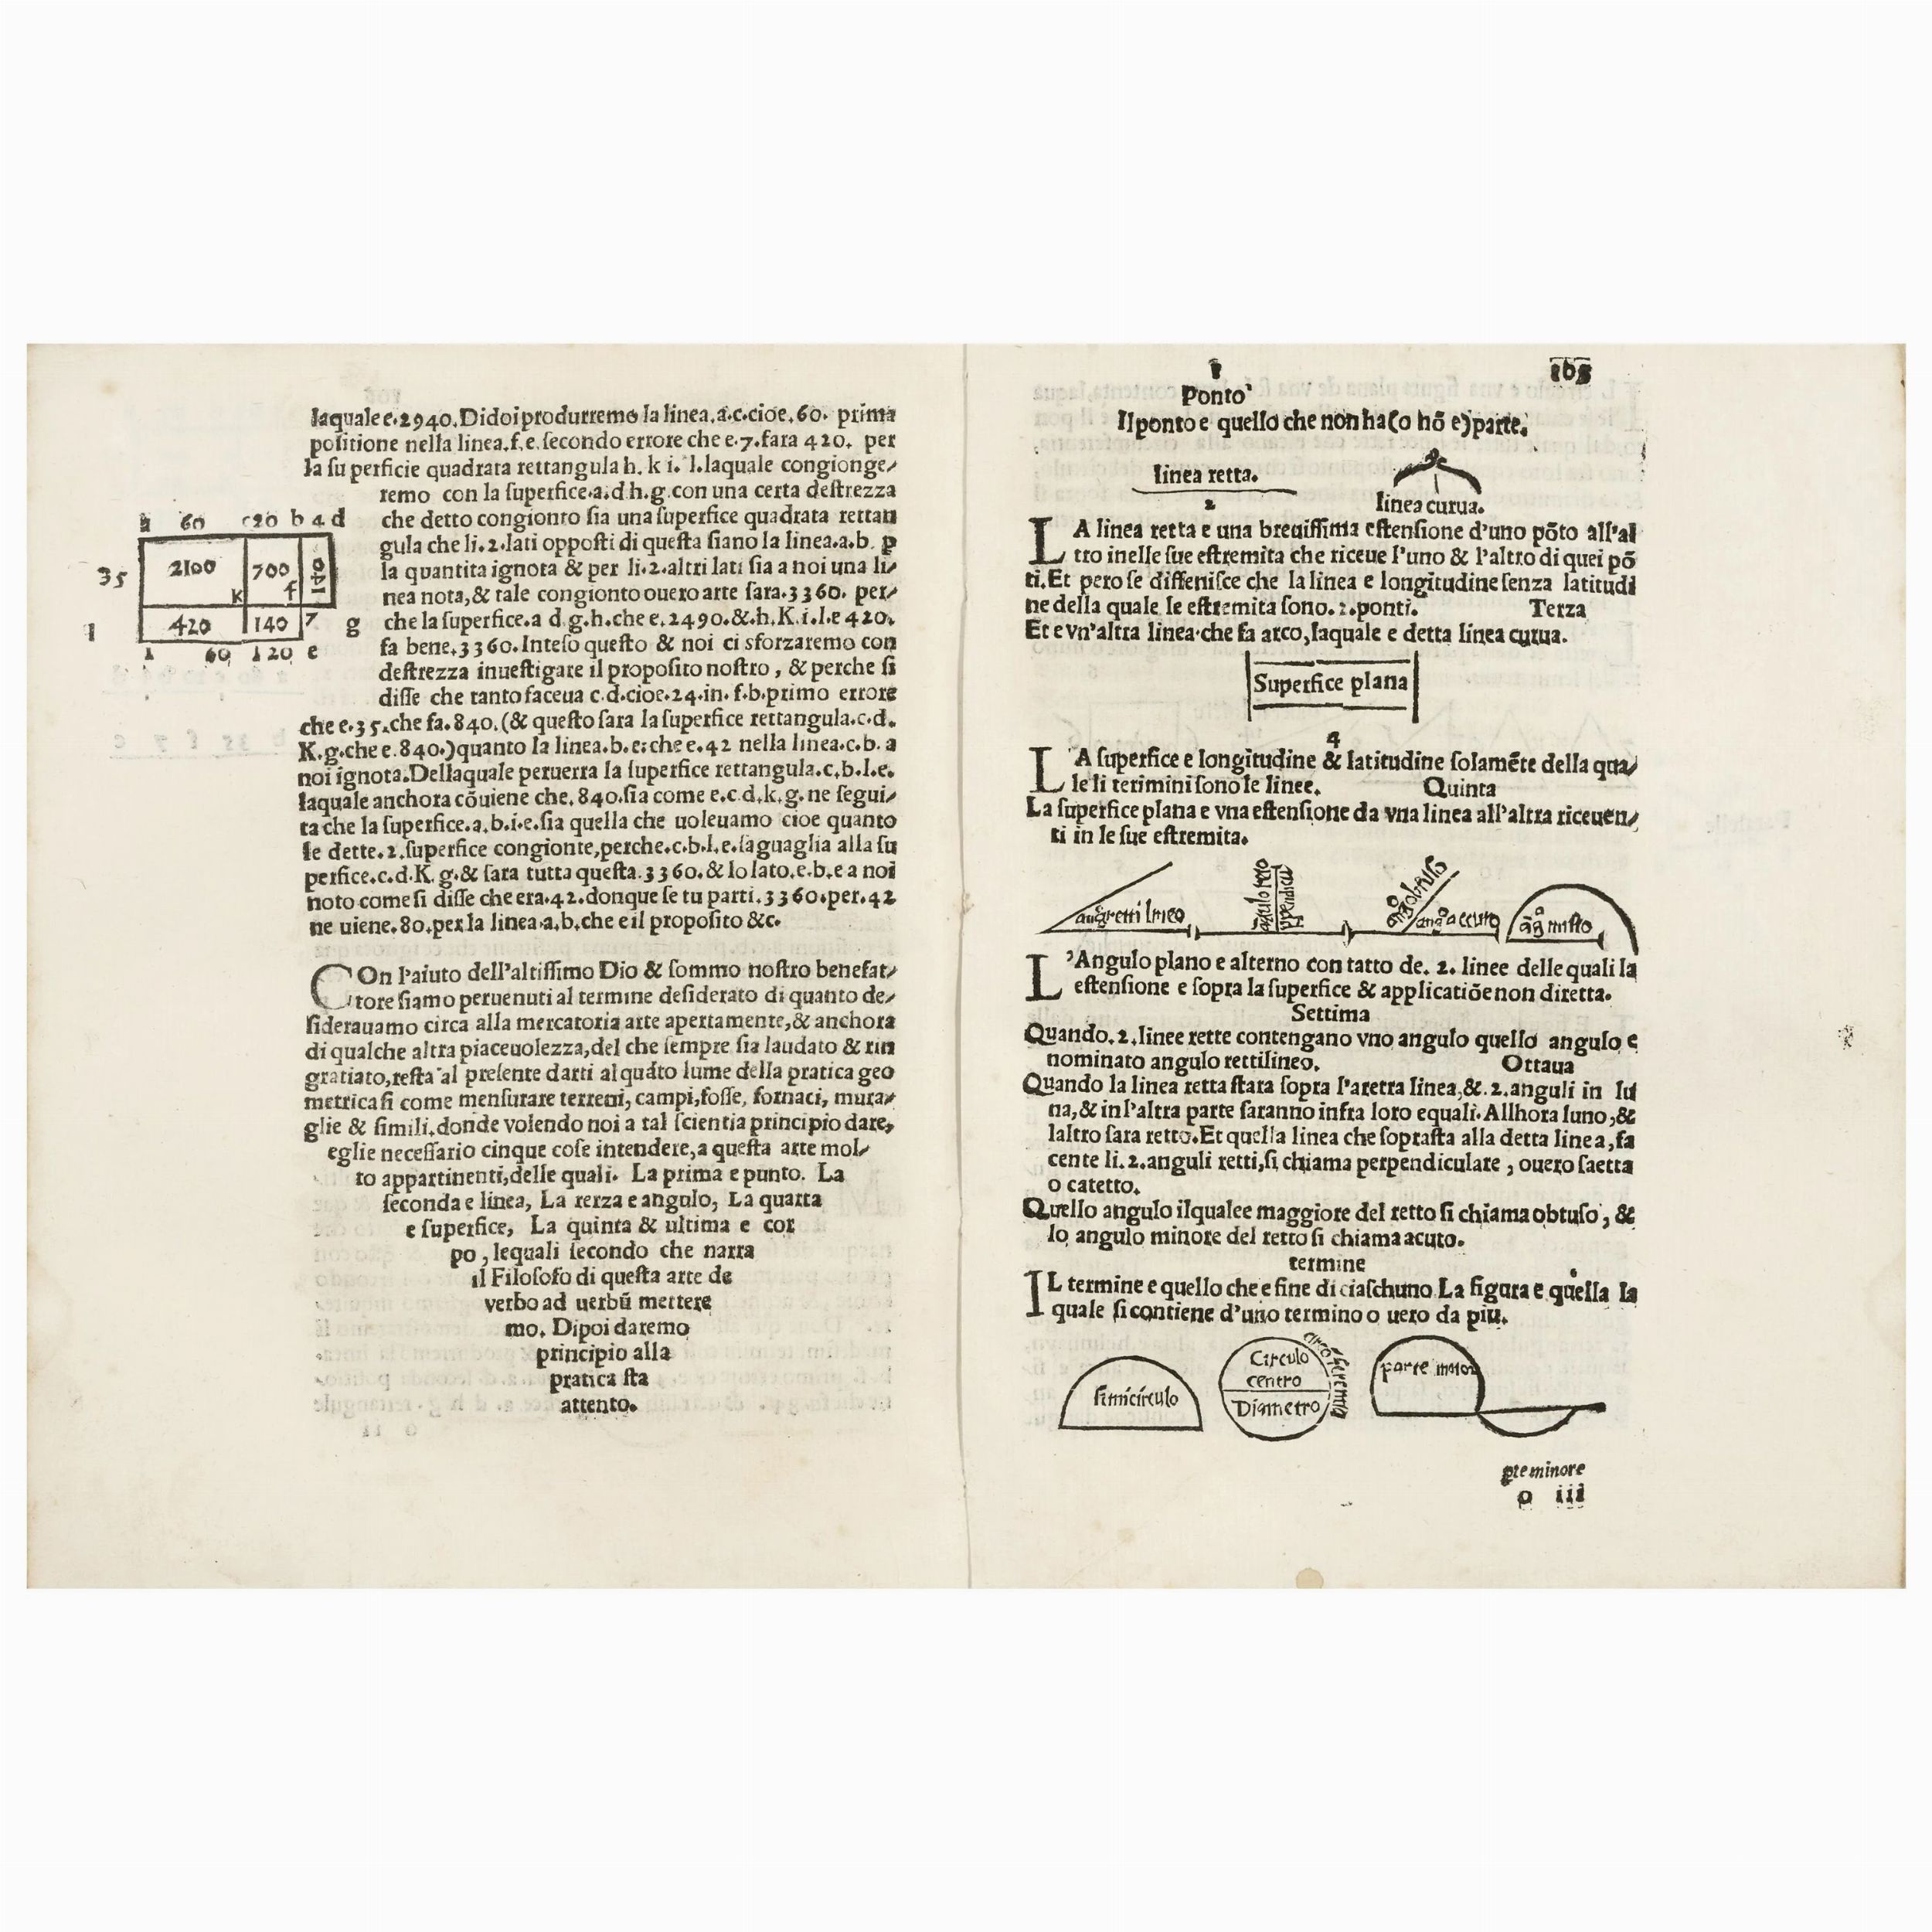 laquale e.2940.Di doi produrremo la linea.a.c.cioe.60. prima
positione nella linea.f.e.secondo errore che e.7.fara 420. per
la su perficie quadrata rettangula h. k i. l.laquale congionge/
remo con la superfice.a.d.h.g.con una certa destrezza
che detto congionto sia una superfice quadrata rettan
gula che li.2.lati opposti di questa siano la linea.a.b. p
la quantita ignota & per li.2.altri lati sia a noi una li/
nea nota,& tale congionto ouero arte sara.3360. per/
che la superfice.a d.g.h.che e.2490.&.h.K.i.l.e 420.
fa bene.3360.Inteso questo & noi ci sforzaremo con
destrezza inuestigare il proposito nostro, & perche si
disse che tanto faceua c.d.cioe.24.in. f.b.primo errore
che e.35.che fa.840.(& questo sara la superfice rettangula.c.d.
K.g.che e.840.)quanto la linea.b.e:che e.42 nella linea.c.b. a
noi ignota.Dellaquale peruerra la superfice rettangula.c.b.l.e.
laquale anchora cõuiene che.840.sia come e.c.d.k.g.ne segui/
ta che la superfice.a.b.i.e.sia quella che uoleuamo cioe quanto
le dette.2.superfice congionte,perche.c.b.l.e.saguaglia alla su
perfice.c.d.K.g.& sara tutta questa.3360.& lo lato.e.b.e a noi
noto come si disse che era.42.donque se tu parti.3360.per.42
ne uiene.80.per la linea.a.b.che e il proposito &c.
a 60 c20 b 4 d
35
2100 700 140
K f
420 140 7 g
l
60 120 e
COn l'aiuto dell'altissimo Dio & sommo nostro benefat/
tore siamo peruenuti al termine desiderato di quanto de/
siderauamo circa alla mercatoria arte apertamente,& anchora
di qualche altra piaceuolezza,del che sempre sia laudato & rin
gratiato,resta al presente darti al quáto lume della pratica geo
metrica si come mensurare terreni, campi,fosse, fornaci, mura/
glie & simili.donde volendo noi a tal scientia principio dare,
eglie necessario cinque cose intendere,a questa arte mol/
to appartinenti,delle quali. La prima e punto. La
seconda e linea, La rerza e angulo, La quarta
e superfice, La quinta & ultima e cor
po, lequali secondo che narra
il Filosofo di questa arte de
verbo ad uerbũ mettere
mo. Dipoi daremo
principio alla
pratica sta
attento.
165
1
Ponto
Il ponto e quello che non ha(o hõ e)parte.
linea retta.
linea curua.
2
LA linea retta e una breuissima estensione d'uno põto all'al
tro inelle sue estremita che riceue l'uno & l'altro di quei põ
ti.Et pero se diffenisce che la linea e longitudine senza latitudi
ne della quale le estremita sono.2.ponti. Terza
Et e vn'altra linea che fa arco,laquale e detta linea curua.
Superfice plana
4
LA superfice e longitudine & latitudine solamẽte della qua/
le li terimini sono le linee. Quinta
La superfice plana e vna estensione da vna linea all'altra riceuen/
ti in le sue estremita.
ango accuto
ãgo misto
L'Angulo plano e alterno con tatto de. 2. linee delle quali la
estensione e sopra la superfice & applicatiõe non diretta.
Settima
Quando.2.linee rette contengano vno angulo quello angulo e
nominato angulo rettilineo. Ottaua
Quando la linea retta stara sopra l'aretra linea,&.2.anguli in lu
na,& in l'altra parte saranno infra loro equali.Allhora luno,&
laltro sara retto.Et quella linea che soprasta alla detta linea,fa
cente li.2.anguli retti,si chiama perpendiculare, ouero saetta
o catetto.
Quello angulo ilquale e maggiore del retto si chiama obtuso, &
lo angulo minore del retto si chiama acuto.
termine
IL termine e quello che e fine di ciaschuno La figura e quella la
quale si contiene d'uno termino o uero da piu.
simicirculo
Circulo
centro
Diametro
parte maior
pte minore
o iii